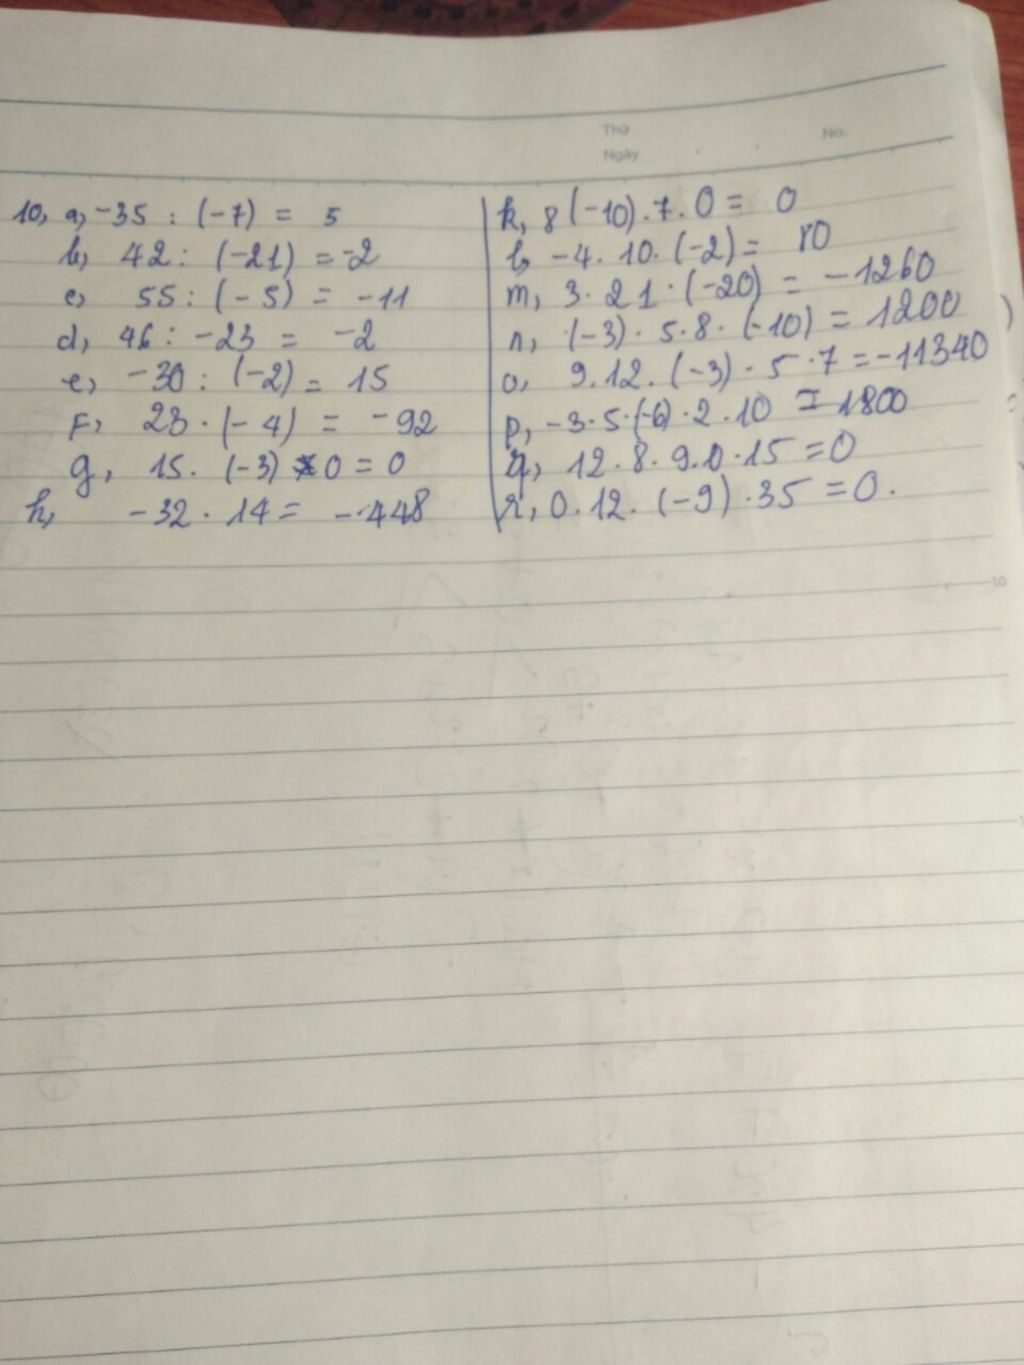 Thứ
No.
Ngày
10, a, -35 : (-7) = 5
b, 42 : (-21) = -2
c, 55 : (-5) = -11
d, 46 : -23 = -2
e, -30 : (-2) = 15
F, 23 . (-4) = -92
g, 15 . (-3) . 0 = 0
h, -32 . 14 = -448
k, 8 (-10) . 7 . 0 = 0
l, -4 . 10 . (-2) = 80
m, 3 . 21 . (-20) = -1260
n, (-3) . 5 . 8 . (-10) = 1200
o, 9 . 12 . (-3) . 5 . 7 = -11340
p, -3 . 5 . (-6) . 2 . 10 = 1800
q, 12 . 8 . 9 . 0 . 15 = 0
r, 0 . 12 . (-9) . 35 = 0 .
10